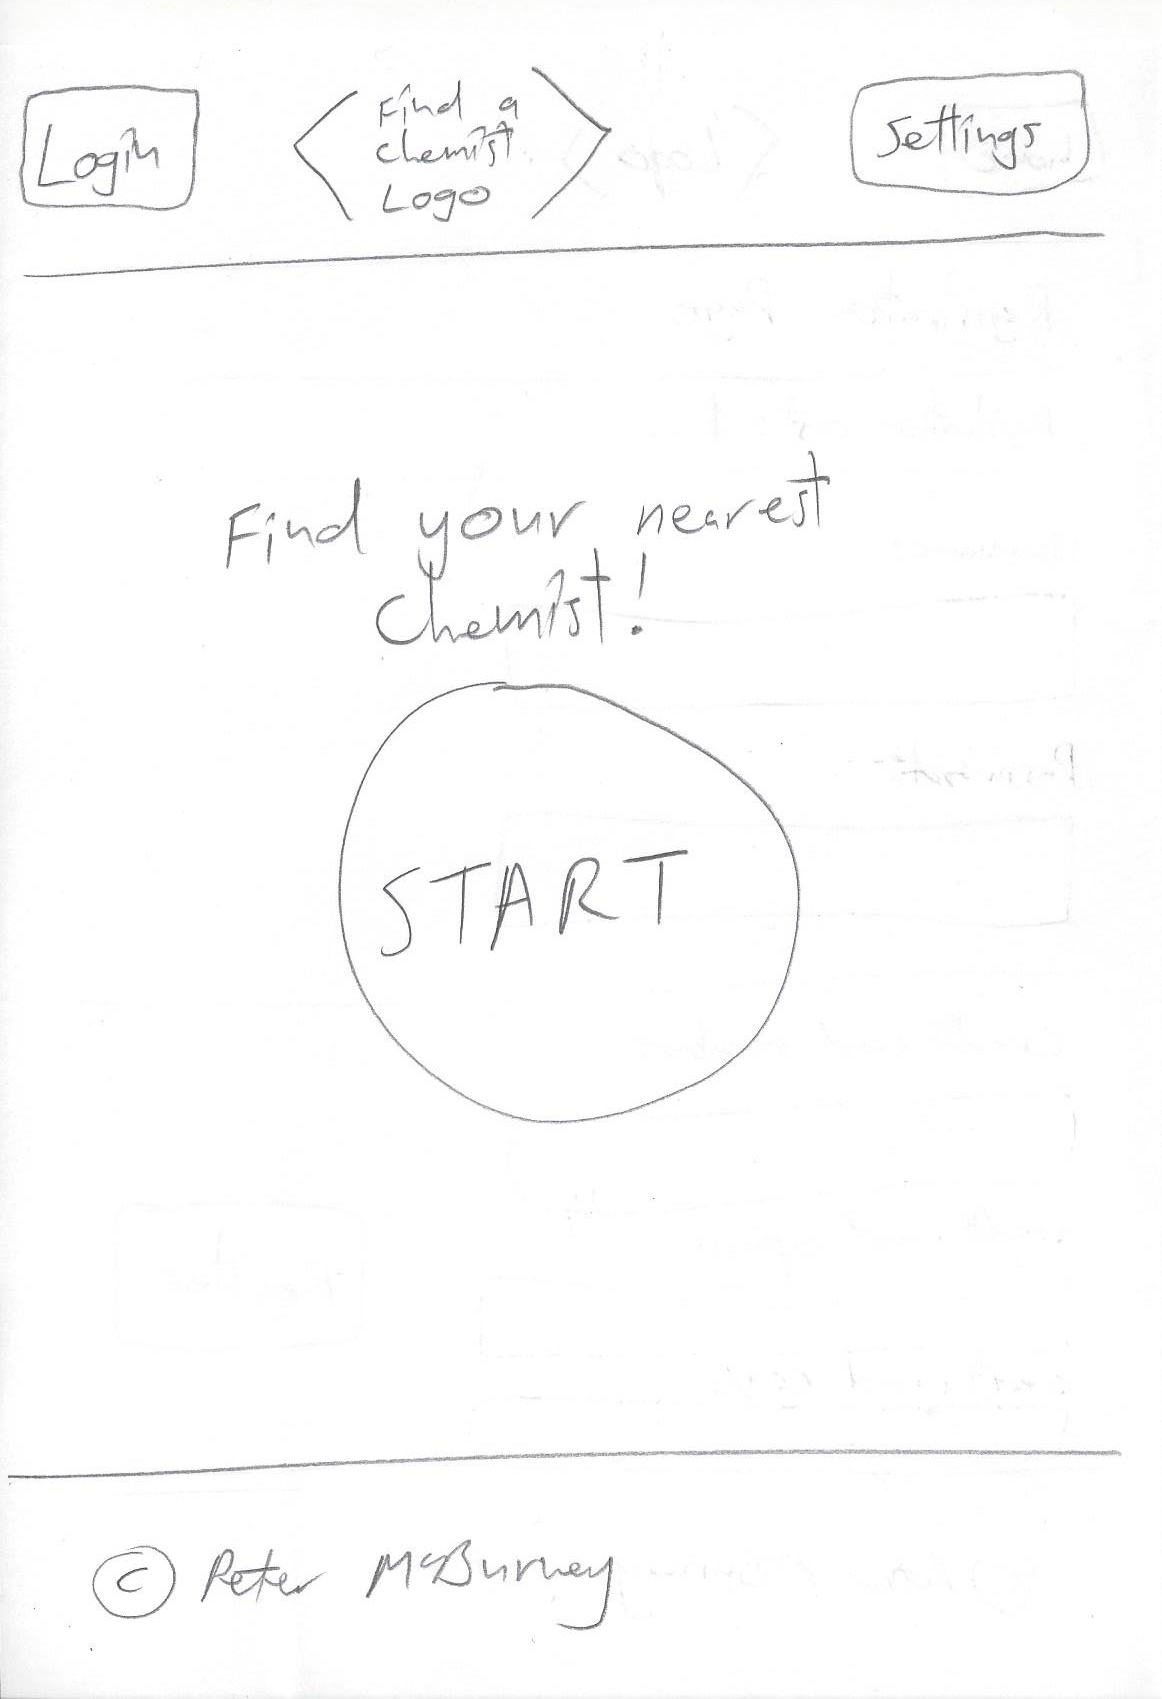 Login
Find a
chemist
Logo
Settings
Find your nearest
Chemist!
START
© Peter McBurney